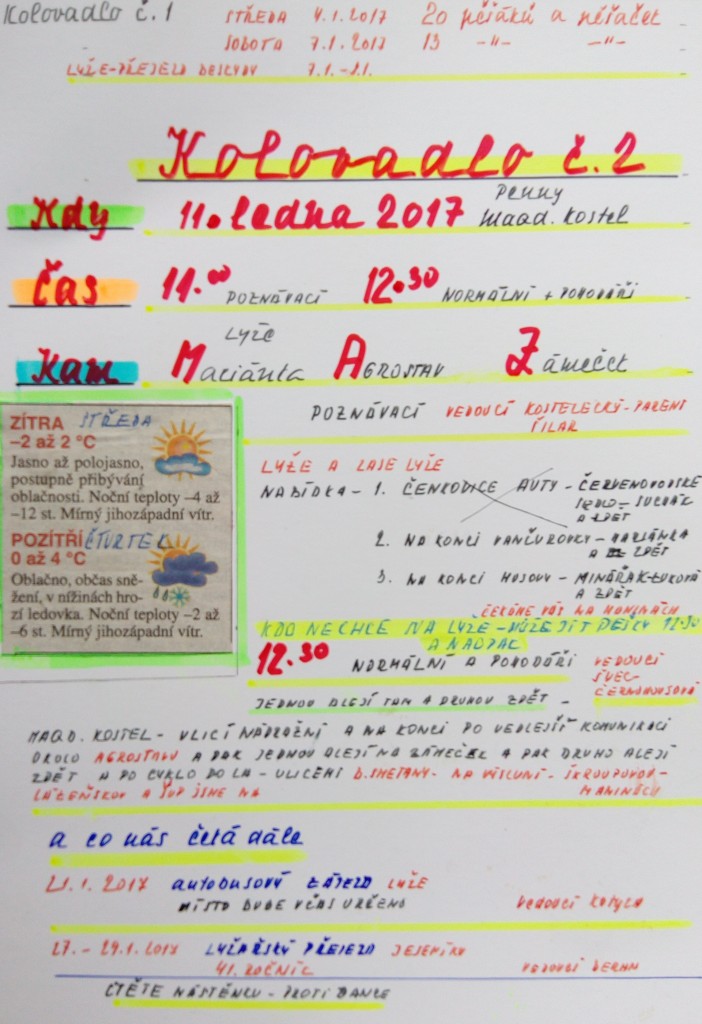 Kolovadlo č. 1 STŘEDA 4.1.2017 20 pěšáků a pěšaček
SOBOTA 7.1.2017 13 -"- -"-
LYŽE-PŘEJEZD BESKYDY 7.1.-8.1.
Kolovadlo č. 2
Kdy 11. ledna 2017 Penny
Magd. kostel
Čas 11.00 POZNÁVACÍ 12.30 NORMÁLNÍ + POHODÁŘI
LYŽE
Kam Mariánka AGROSTAV Zámeček
POZNÁVACÍ VEDOUCÍ KOSTELECKÝ-PARENI
FILAR
ZÍTRA STŘEDA
–2 až 2 °C
Jasno až polojasno,
postupně přibývání
oblačnosti. Noční teploty –4 až
–12 st. Mírný jihozápadní vítr.
POZÍTŘÍ ČTVRTEK
0 až 4 °C
Oblačno, občas sně-
žení, v nížinách hro-
zí ledovka. Noční teploty –2 až
–6 st. Mírný jihozápadní vítr.
LYŽE A ZASE LYŽE
NABÍDKA - 1. ČENKOVICE AUTY - ČERVENOVODSKÉ
SEDLO - SUCHÁK
A ZPĚT
2. NA KONCI VANČUROVKY - MARIÁNKA
A ZPĚT
3. NA KONCI HUSOVY - MINÁŘ
A ZPĚT
ČEKÁME VÁS NA HOMINÁCH
KDO NECHCE NA LYŽE - MŮŽE JÍT PĚŠKY 12.30
A NAOPAK
12.30 NORMÁLNÍ A POHODÁŘI VEDOUCÍ
ŠVEC-
ČERNOHOUSOVÁ
JEDNOU ALEJÍ TAM A DRUHOU ZPĚT -
MAGD. KOSTEL - ULICÍ NÁDRAŽNÍ A NA KONCI PO VEDLEJŠÍ KOMUNIKACI
OKOLO AGROSTAVU A PAK JEDNOU ALEJÍ NA ZÁMEČEK A PAK DRUHOU ALEJÍ
ZPĚT A PO CYKLO DO LA - ULICEMI B.SMETANY - NA VÝSLUNÍ - ŠKROUPOVOU -
LÁZEŇSKOU A ŠUP JSME NA
a co nás čeká dále
21.1.2017 AUTOBUSOVÝ ZÁJEZD LYŽE
MÍSTO BUDE VČAS URČENO vedoucí Kotyza
27.-29.1.2017 LYŽAŘSKÝ PŘEJEZD JESENÍKY
41. ROČNÍK VEDOUCÍ
ČTĚTE NÁSTĚNKU - PROTI BANCE